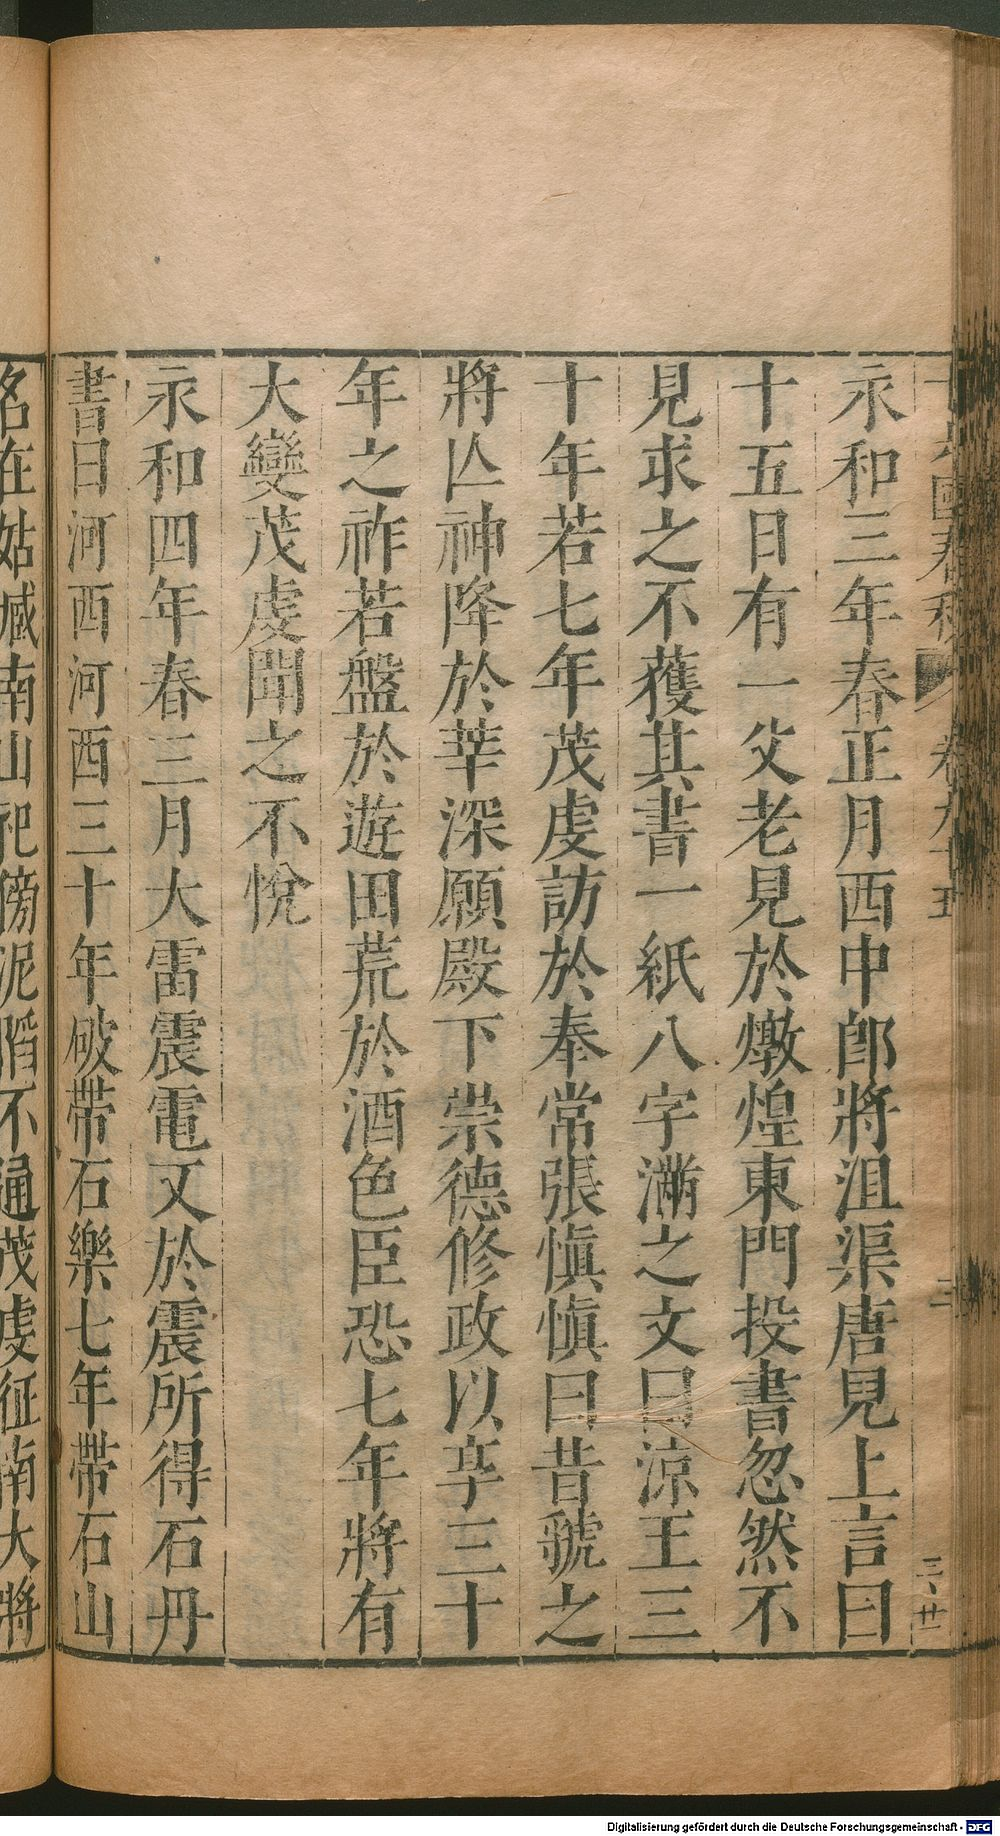 永和三年春正月西中郎將沮渠唐見上言曰
十五日有一父老見於燉煌東門投書忽然不
見求之不獲其書一紙八字滿之文曰涼王三
十年若七年茂虔訪於奉常張愼愼曰昔虢之
將亾神降於莘深願殿下崇德修政以享三十
年之祚若盤於遊田荒於酒色臣恐七年將有
大變茂虔聞之不悅
永和四年春三月大雷震電又於震所得石丹
書曰河西河西三十年破帶石樂七年帶石山
名在姑臧南山祀傍泥陷不通茂虔征南大將
國春秋 卷九十五
Digitalisierung gefördert durch die Deutsche Forschungsgemeinschaft - DFG